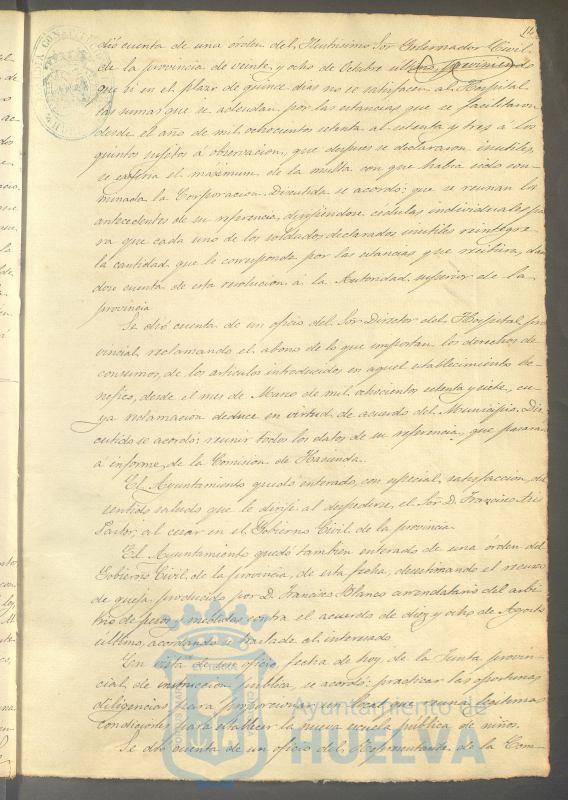 dió cuenta de una órden del Ilustrísimo Sor Gobernador Civil
de la provincia de veinte y ocho de Octubre último, previniendo
que si en el plazo de quince dias no se satisfacen al Hospital
las sumas que se adeudan por las estancias que se facilitaron
desde el año de mil ochocientos setenta al setenta y tres á los
quintos sujetos á observacion, que despues se declararon inutiles,
se exijiria el máximum de la multa con que habia sido con-
minada la Corporacion. Discutida se acordó: que se reunan los
antecedentes de su referencia, dirijiendose cedulas individuales pa-
ra que cada uno de los soldados declarados inutiles reintegre
la cantidad que le corresponda por las estancias que recibiera, dan-
dose cuenta de esta resolucion á la Autoridad superior de la
provincia.
Se dió cuenta de un oficio del Sor Director del Hospital pro-
vincial, reclamando el abono de lo que importan los derechos de
consumos, de los articulos introducidos en aquel establecimiento be-
nefico, desde el mes de Marzo de mil ochocientos setenta y siete, cu-
ya reclamacion deduce en virtud de acuerdo del Municipio. Dis-
cutido se acordó: reunir todos los datos de su referencia, que pasaran
á informe, de la Comision de Hacienda.
El Ayuntamiento quedó enterado, con especial satisfaccion, del
sentido saludo que le dirije al despedirse, el Sor D. Francisco
Pastor, al cesar en el Gobierno Civil de la provincia.
El Ayuntamiento quedó tambien enterado de una órden del
Gobierno Civil de la provincia, de esta fecha, desestimando el recurso
de queja producido por D. Francisco Blanco arrendatario del arbi-
trio de pesos y medidas contra el acuerdo de diez y ocho de Agosto
último, acordando se traslade al interesado.
En vista de un oficio fecha de hoy, de la Junta provin-
cial de instruccion publica, se acordó: practicar las oportunas
diligencias para proporcionar un local que reuna legitimas
condiciones para establecer la nueva escuela pública de niños.
Se dió cuenta de un oficio del Representante de la Com-
Ayuntamiento de
HUELVA